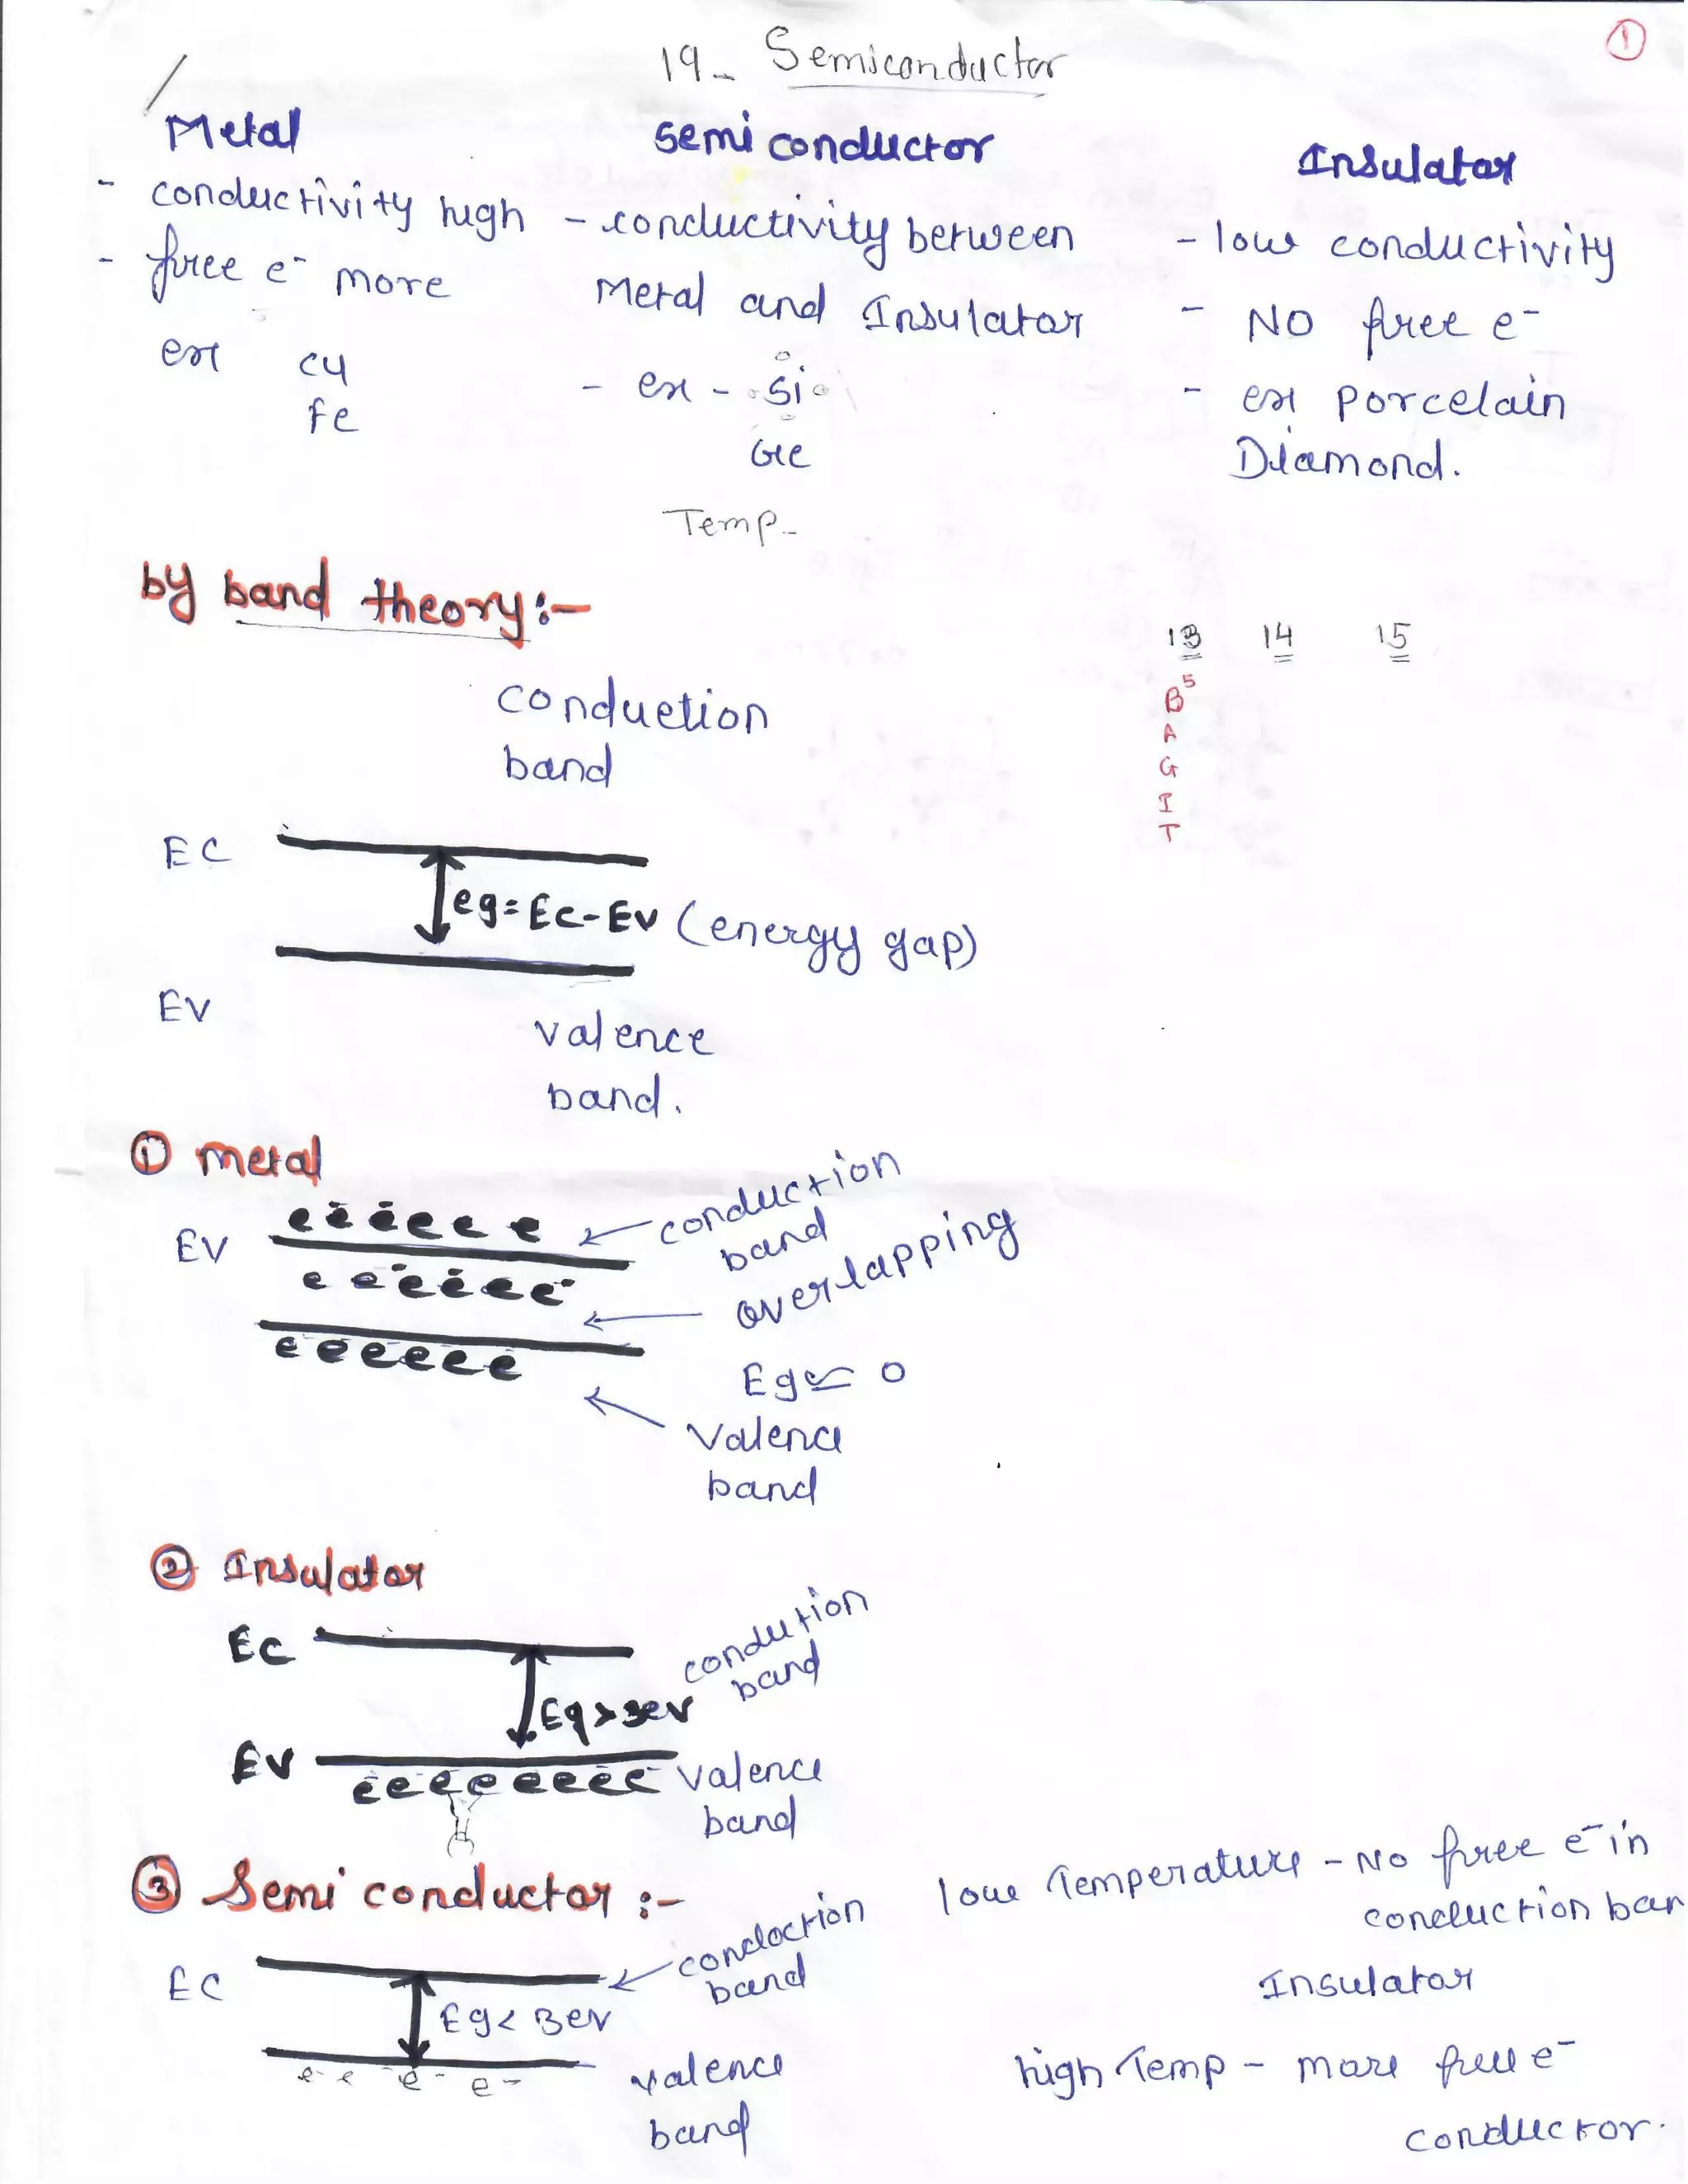 1
19- Semiconductor
Metal
- conductivity high
- free e- more
ex Cu
Fe
semiconductor
- conductivity between
Metal and Insulator
- ex - Si
Ge
Temp-
Insulator
- low conductivity
- NO free e-
- ex Porcelain
Diamond.
by band theory:-
13 14 15
B5
A
G
I
T
conduction
band
EC
eg=Ec-Ev (energy gap)
EV
valence
band.
① metal
EV e e e e e e
conduction
band
e e e e e e
overlapping
e e e e e e
Eg ≃ 0
Valence
band
② Insulator
EC
condution
band
Eg>3ev
EV
e e e e e e e e
valence
band
③ Semi conductor :-
EC
conduction
band
Eg< 3ev
e- e e- e-
valence
band
low Temperature - No free e- in
conduction ban
Insulator
high Temp - more free e-
conductor.